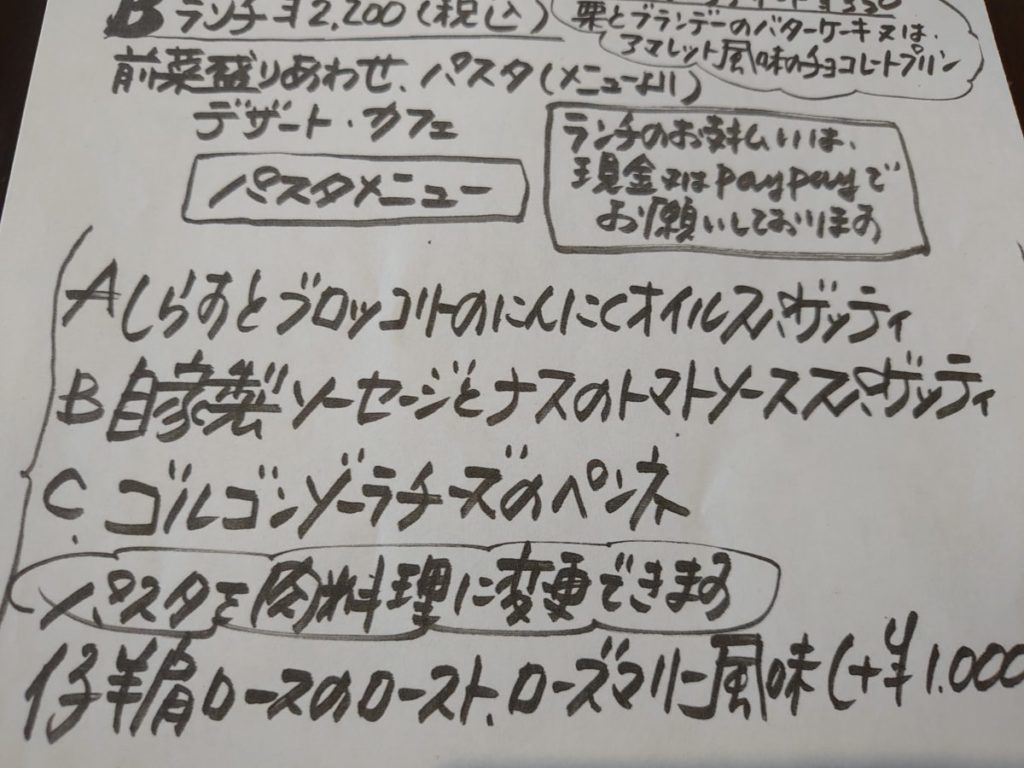 Bランチ¥2,200(税込)
栗とブランデーのバターケーキ又は、
アマレット風味のチョコレートプリン
前菜盛りあわせ、パスタ(メニューより)
デザート・カフェ
ランチのお支払いは、
現金又はpaypayで
お願いしております
パスタメニュー
Aしらすとブロッコリーのにんにくオイルスパゲッティ
B自家製ソーセージとナスのトマトソーススパゲッティ
C.ゴルゴンゾーラチーズのペンネ
パスタを肉料理に変更できます
仔羊肩ロースのロースト、ローズマリー風味(+¥1.000